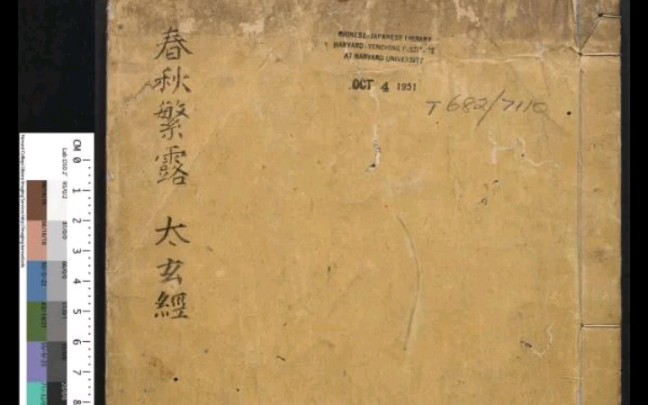 春秋繁露 太玄經
CHINESE-JAPANESE LIBRARY
HARVARD-YENCHING INSTITUTE
AT HARVARD UNIVERSITY
OCT 4 1951
T 682/7110
CM 0 1 2 3 4 5 6 7 8